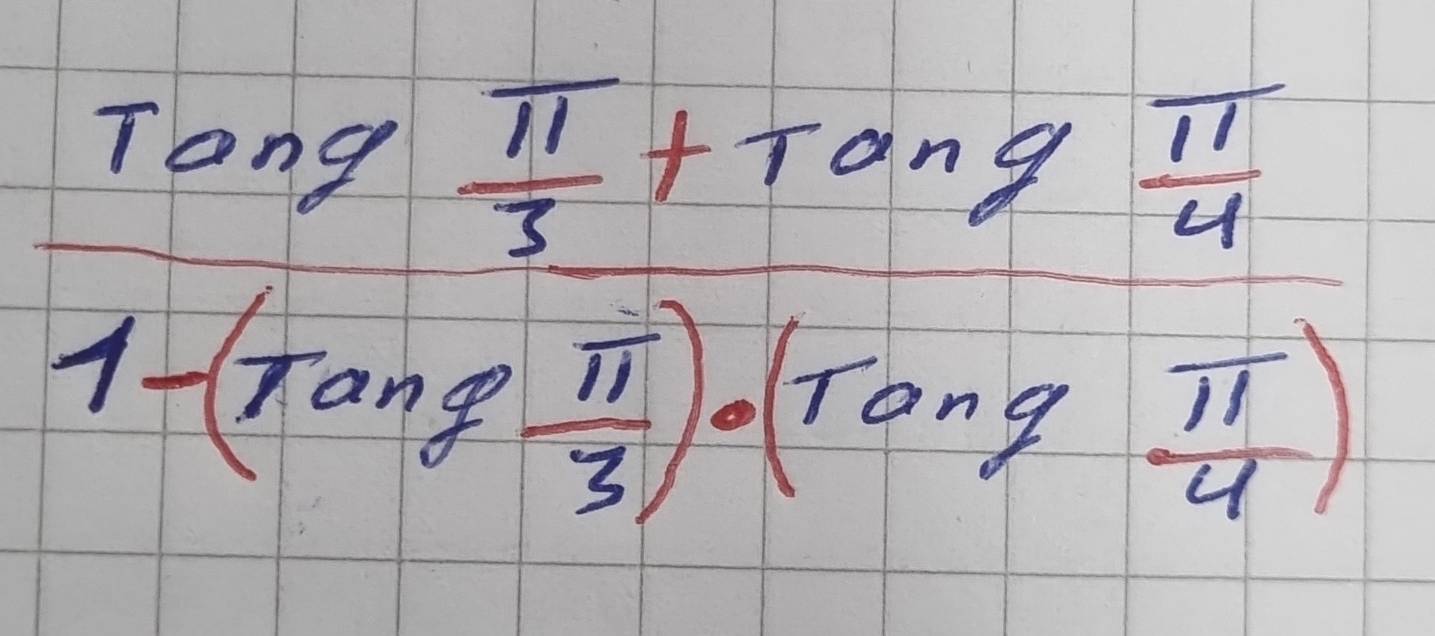 Tang π/3 + Tang π/4
1-(Tang π/3)•(Tang π/4)